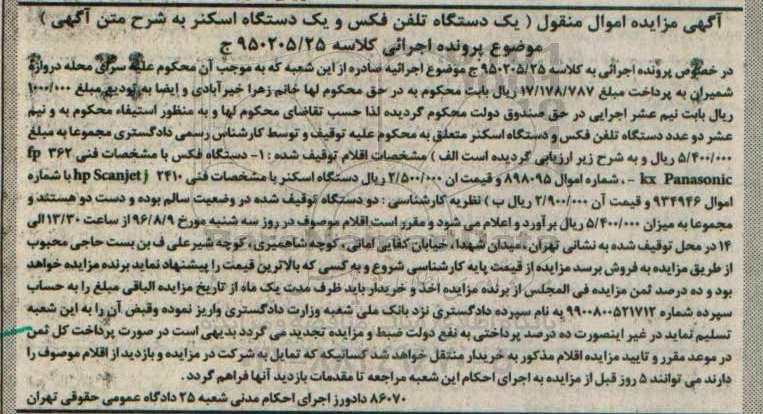 آگهی مزایده اموال منقول ( یک دستگاه تلفن فکس و یک دستگاه اسکنر به شرح متن آگهی )
موضوع پرونده اجرائی کلاسه ۹۵۰۲۰۵/۲۵ ج
در خصوص پرونده اجرائی به کلاسه ۹۵۰۲۰۵/۲۵ ج موضوع اجرائیه صادره از این شعبه که به موجب آن محکوم علیه سرای محله دروازه
شمیران به پرداخت مبلغ ۱۷/۱۷۸/۷۸۷ ریال بابت محکوم به در حق محکوم لها خانم زهرا خیرآبادی و ایضا به تودیع مبلغ ۱۰۰۰/۰۰۰
ریال بابت نیم عشر اجرایی در حق صندوق دولت محکوم گردیده لذا حسب تقاضای محکوم لها و به منظور استیفاء محکوم به و نیم
عشر دو عدد دستگاه تلفن فکس و دستگاه اسکنر متعلق به محکوم علیه توقیف و توسط کارشناس رسمی دادگستری مجموعا به مبلغ
۵/۴۰۰/۰۰۰ ریال و به شرح زیر ارزیابی گردیده است الف ) مشخصات اقلام توقیف شده : ۱- دستگاه فکس با مشخصات فنی fp ۳۶۲
kx Panasonic – . شماره اموال ۸۹۸۰۹۵ و قیمت ان ۲/۵۰۰/۰۰۰ ریال دستگاه اسکنر با مشخصات فنی hp Scanjet j ۲۴۱۰ با شماره
اموال ۹۳۴۹۴۶ و قیمت آن ۲/۹۰۰/۰۰۰ ریال ب ) نظریه کارشناسی : دو دستگاه توقیف شده در وضعیت سالم بوده و دست دو هستند و
مجموعا به میزان ۵/۴۰۰/۰۰۰ ریال برآورد و اعلام می شود و مقرر است اقلام موصوف در روز سه شنبه مورخ ۹۶/۸/۹ از ساعت ۱۳/۳۰ الی
۱۴ در محل توقیف شده به نشانی تهران، میدان شهدا، خیابان کفایی امانی، کوچه شاهمیری، کوچه شیرعلی ف بن بست حاجی محبوب
از طریق مزایده به فروش برسد مزایده از قیمت پایه کارشناسی شروع و به کسی که بالاترین قیمت را پیشنهاد نماید برنده مزایده خواهد
بود و ده درصد ثمن مزایده فی المجلس از برنده مزایده اخذ و خریدار باید ظرف مدت یک ماه از تاریخ مزایده الباقی مبلغ را به حساب
سپرده شماره ۹۹۰۰۸۰۰۵۲۱۷۱۲ به نام سپرده دادگستری نزد بانک ملی شعبه وزارت دادگستری واریز نموده وقبض آن را به این شعبه
تسلیم نماید در غیر اینصورت ده درصد پرداختی به نفع دولت ضبط و مزایده تجدید می گردد بدیهی است در صورت پرداخت کل ثمن
در موعد مقرر و تایید مزایده اقلام مذکور به خریدار منتقل خواهد شد کسانیکه که تمایل به شرکت در مزایده و بازدید از اقلام موصوف را
دارند می توانند ۵ روز قبل از مزایده به اجرای احکام این شعبه مراجعه تا مقدمات بازدید آنها فراهم گردد.
۸۶۰۷۰ دادورز اجرای احکام مدنی شعبه ۲۵ دادگاه عمومی حقوقی تهران